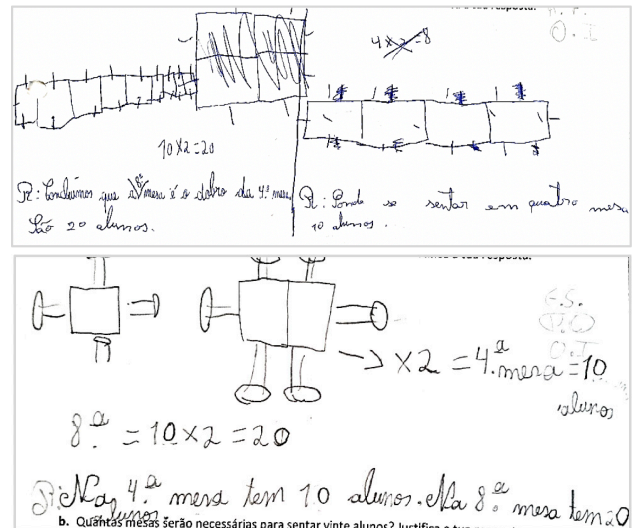 4 x 2 = 8
O.I
10 x 2 = 20
R: Concluimos que a 8ª mesa é o dobro da 4ª mesa
São 20 alunos.
R: Ponde se sentar em quatro mesa
10 alunos.
E.S.
O.I
→ x2 = 4.ª mesa = 10
alunos
8.ª = 10 x 2 = 20
R: Na 4.ª mesa tem 10 alunos. Na 8.ª mesa tem 20
alunos.
b. Quantas mesas serão necessárias para sentar vinte alunos?